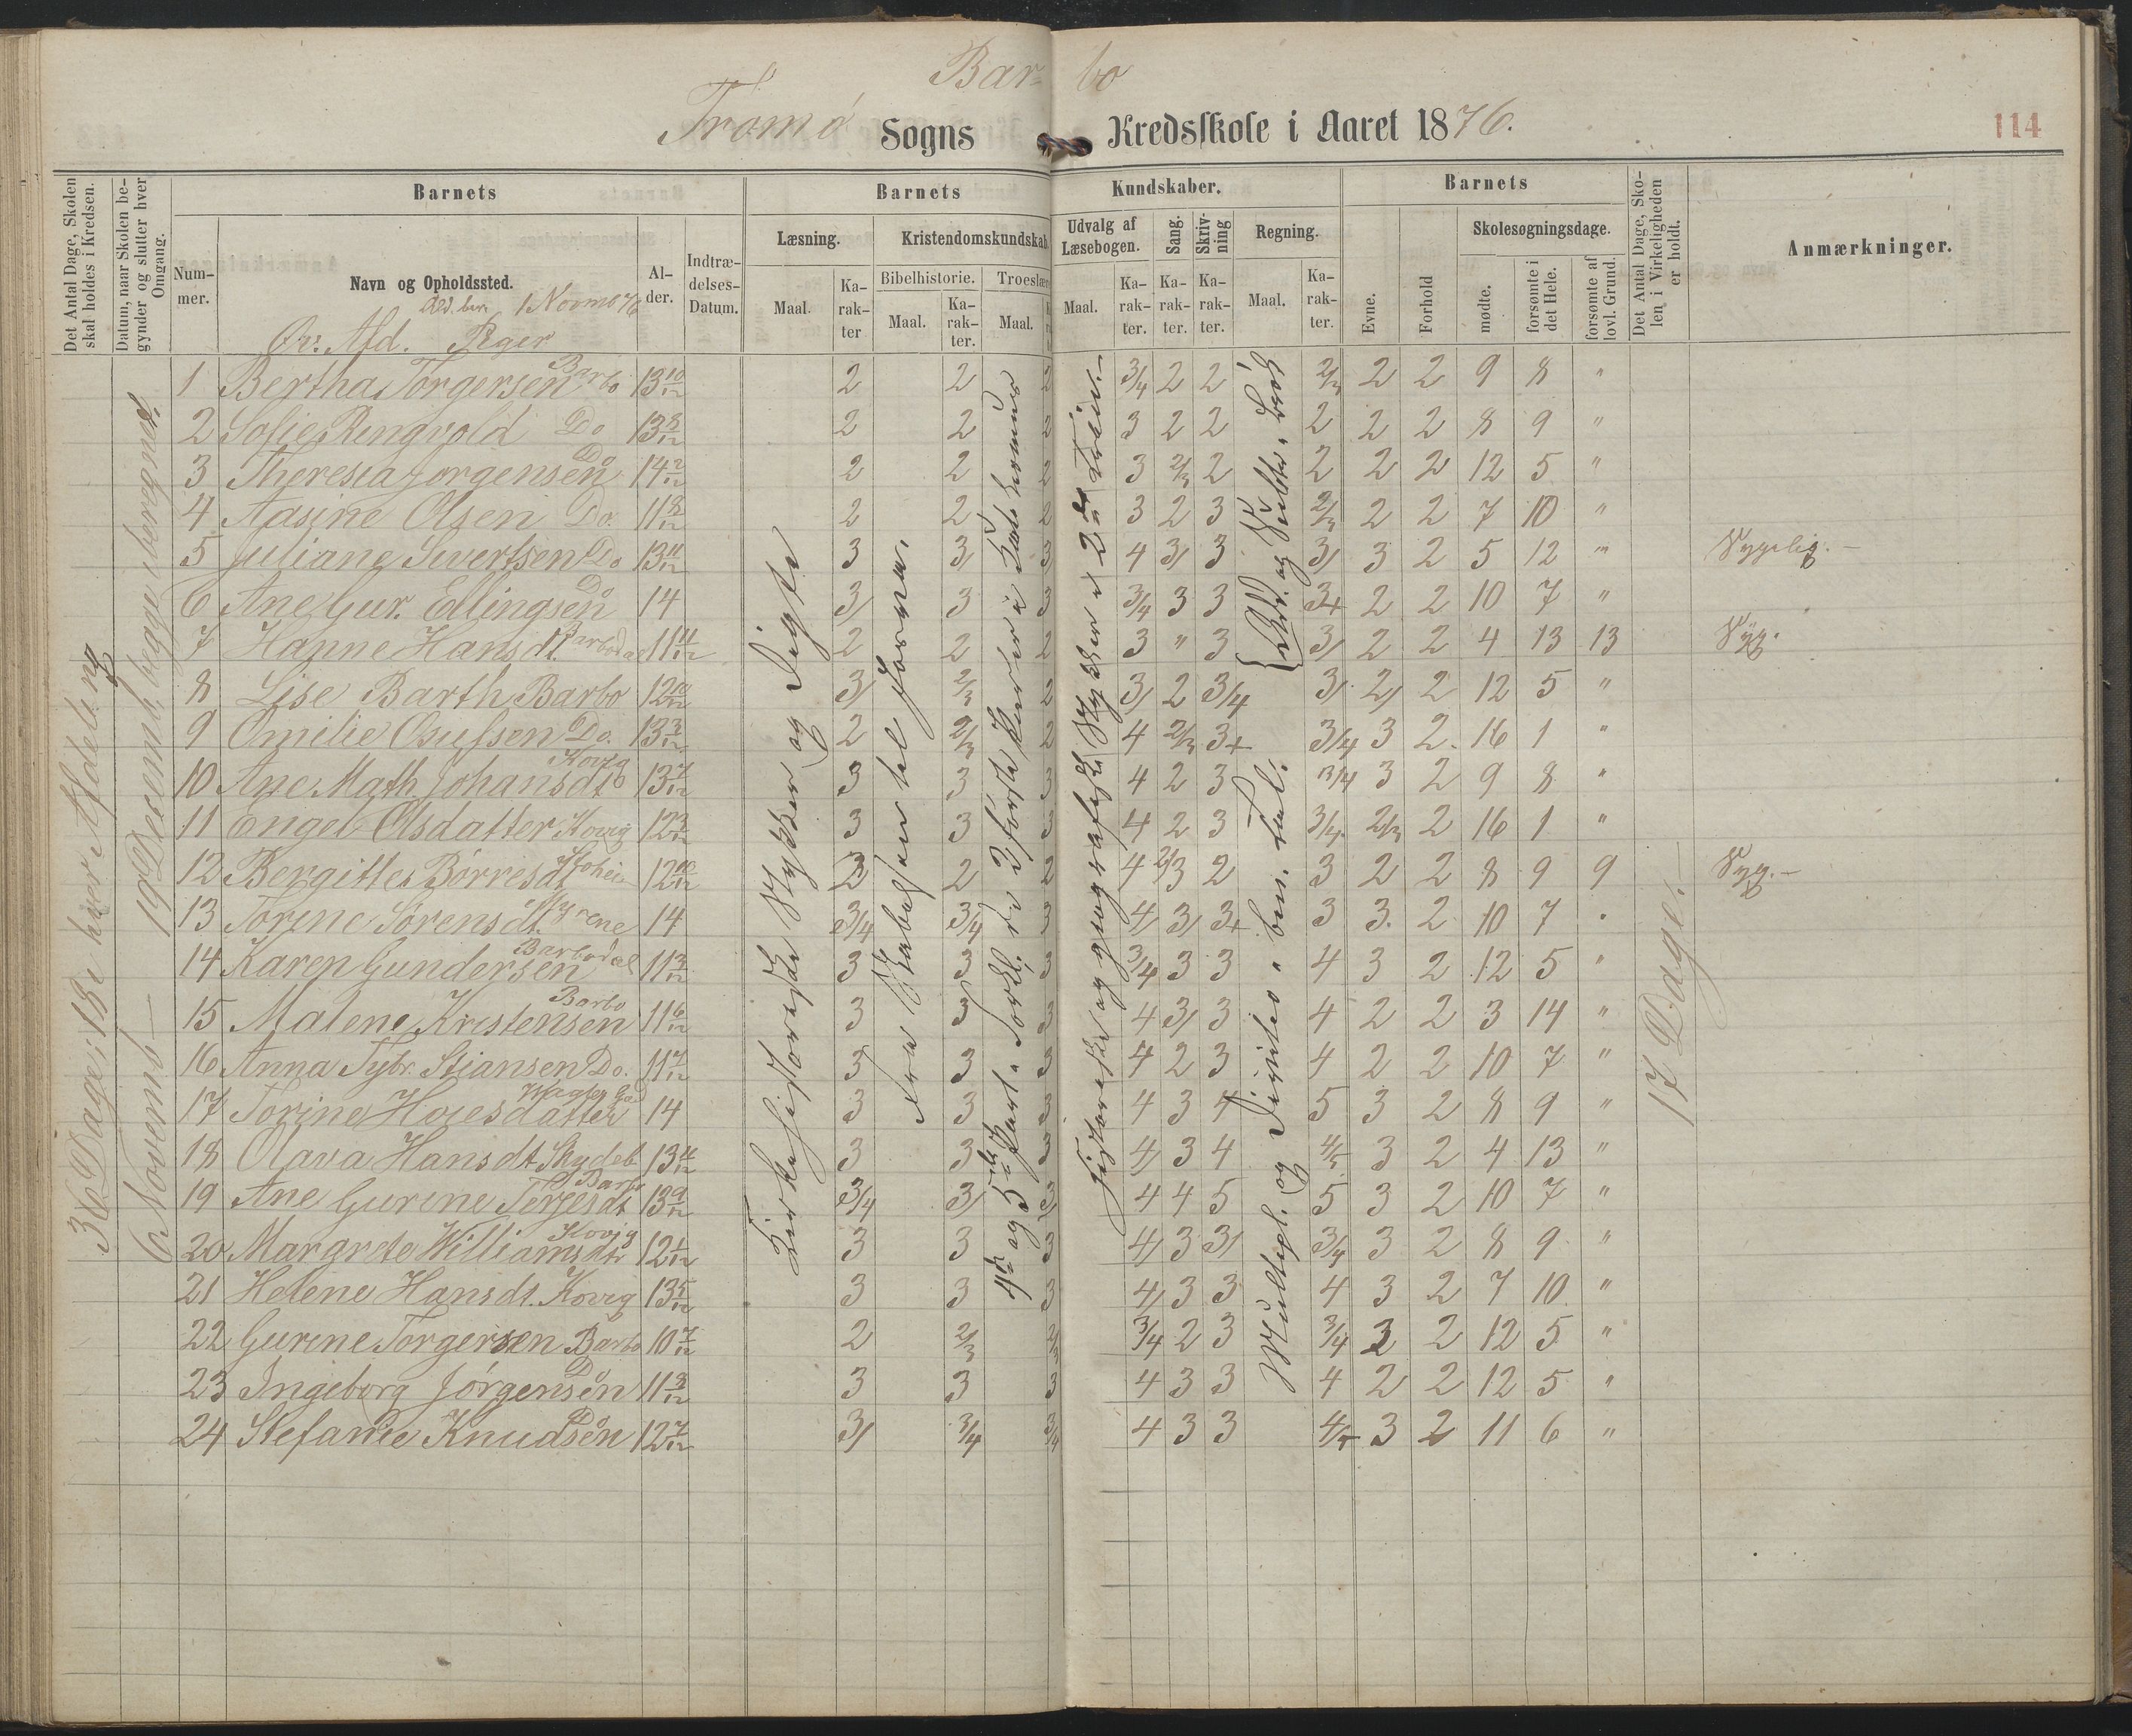 Bar- bo
Tromø Sogns Kredsskole i Aaret 1876.
114
Det Antal Dage, Skolen skal holdes i Kredsen.
Datum, naar Skolen begynder og slutter hver Omgang.
Barnets
Barnets
Kundskaber.
Barnets
Det Antal Dage, Skolen i Virkeligheden er holdt.
Anmærkninger.
Nummer.
Navn og Opholdssted.
Alder.
Indtrædelses-Datum.
Læsning.
Kristendomskundskab
Udvalg af Læsebogen.
Sang.
Skrivning
Regning.
Evne.
Forhold
Skolesøgningsdage.
Maal.
Karakter
Bibelhistorie.
Troeslære
Maal.
Karakter.
Maal.
Maal.
Karakter.
Karakter.
Karakter.
Maal.
Karakter.
mødte.
forsømte i det Hele.
forsømte af lovl. Grund.
Øv. Afd. Piger
36 Dage; 18 i hver Afdeling
6 Novemb — 19 Decemb, begge iberegnede.
Kirkehistoriske Stykker og Digte
Fra Skabelsen til
4de og 5te Part
historiske og geografiske Stykker i 2det
Multipl. og Division
17 Dage.—
1 Bertha Torgersen Barbo 13 10/12 2 2 2 3/4 2 2 2/3 2 2 9 8 "
2 Sofie Ringvold Do 13 8/12 2 2 2 3 2 2 2 2 2 8 9 "
3 Theresia Jørgensen Do 14 2/12 2 2 2 3 2/3 2 2 2 2 12 5 "
4 Aasine Olsen Do. 11 8/12 2 2 2 3 2 3 2/3 2 2 7 10 "
5 Juliane Sivertsen Do 13 11/12 3 3/ 3/ 4 3/ 3 3/ 3 2 5 12 " Sygelig.—
6 Ane Gur. Ellingsen Do 14 3/ 3 3 3/4 3 3 3+ 2 2 10 7 "
7 Hanne Hansdt. Barbodal 11 11/12 2 2 2 3 " 3 3/ 2 2 4 13 13 Syg.
8 Lise Barth Barbo 12 10/12 3/ 2/3 2 3/ 2 3/4 3/ 2/ 2 12 5 "
9 Omilie Osufsen Do. 13 3/12 2 2/3 2 4 2/3 3+ 3/4 3 2 16 1 "
10 Ane Math Johansdt Kovig 13 7/12 3 3 3 4 2 3 3/4 3 2 9 8 "
11 Engel Olsdatter Kovig 12 3/12 3 3 3 4 2 3 3/4 2/3 2 16 1 "
12 Bergitte Børresdt 12 10/12 2 2 2 4 2/3 2 3 2 2 8 9 9 Syg.—
13 Torine Sørensdt. 14 3/4 3/4 3 4/ 3/ 3+ 3 3 2 10 7 "
14 Karen Gundersen Barbodal 11 3/12 3 3 3 3/4 3 3 4 3 2 12 5 "
15 Malene Kristensen Barbo 11 6/12 3 3 3 4 3/ 3 4 2 2 3 14 "
16 Anna Sybr. Stiansen Do. 11 7/12 3 3 3 4 2 3 4 2 2 10 7 "
17 Torine Hovesdatter 14 3 3 3 4 3 4 5 3 2 8 9 "
18 Olava Hansdt 13 11/12 3 3 3 4/ 3 4 4/5 3 2 4 13 "
19 Ane Gurine Terjesdt Barbo 13 9/12 3/4 3/ 3/ 4 4 5 5 3 2 10 7 "
20 Margrete Williamsdtr Kovig 12 1/12 3 3 3 4/ 3 3/ 3/4 3 2 8 9 "
21 Helene Hansdt. Kovig 13 5/12 3 3 3 4/ 3 3 4 3 2 7 10 "
22 Gurine Torgersen Barbo 10 7/12 2 2/3 2/3 3/4 2 3 3/4 3 2 12 5 "
23 Ingeborg Jørgensen Do 11 8/12 3 3 3 4 3 3 4 2 2 12 5 "
24 Stefanie Knudsen Do 12 7/12 3/ 3/4 3/4 4 3 3 4/5 3 2 11 6 "